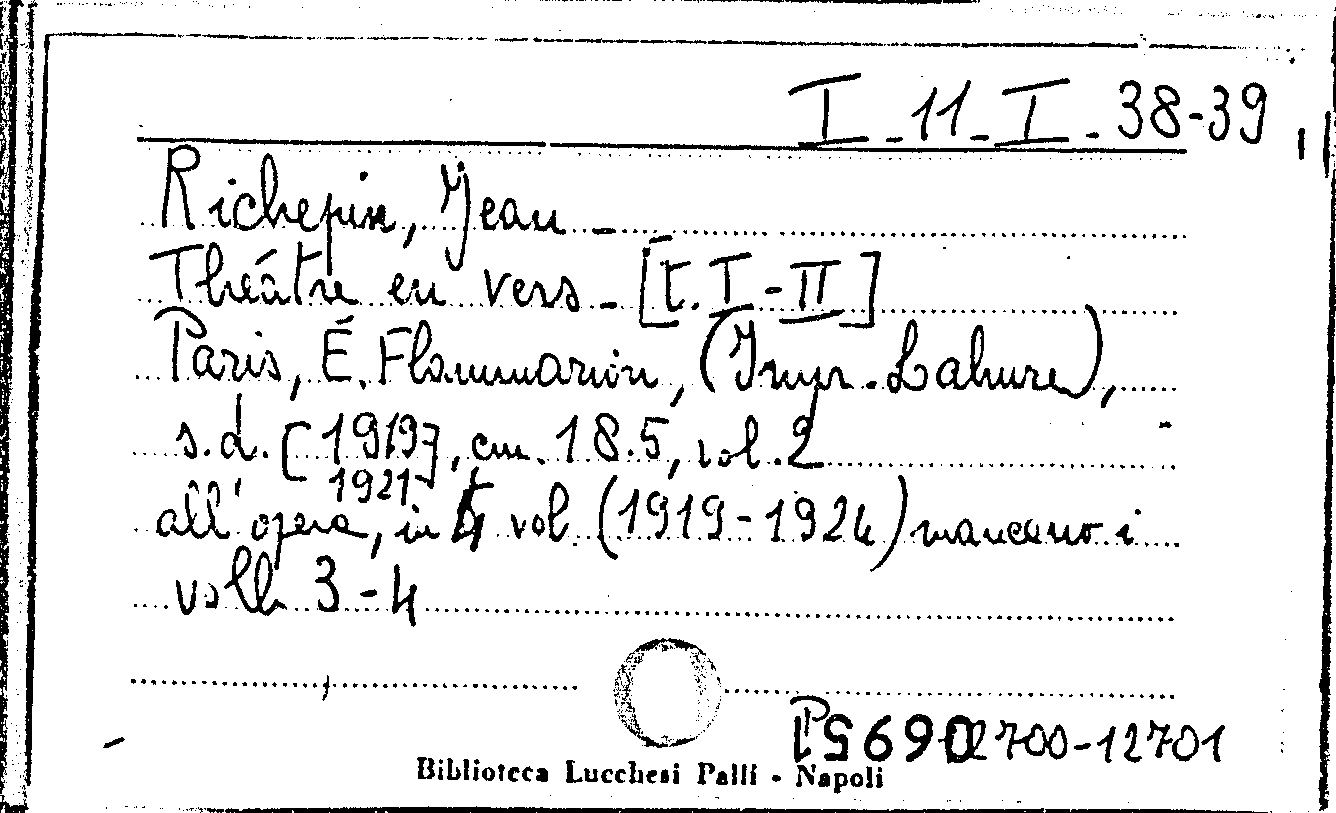 I - 11 - I - 38-39
Richepin, Jean -
Théâtre en vers - [t. I - II]
Paris, É. Flammarion, (Impr. Lahure),
s.d. [1919], cm. 18.5, vol. 2
1921
all'opera, in 4 vol. (1919-1924) mancano i
voll. 3-4
12700-12701
Biblioteca Lucchesi Palli - Napoli